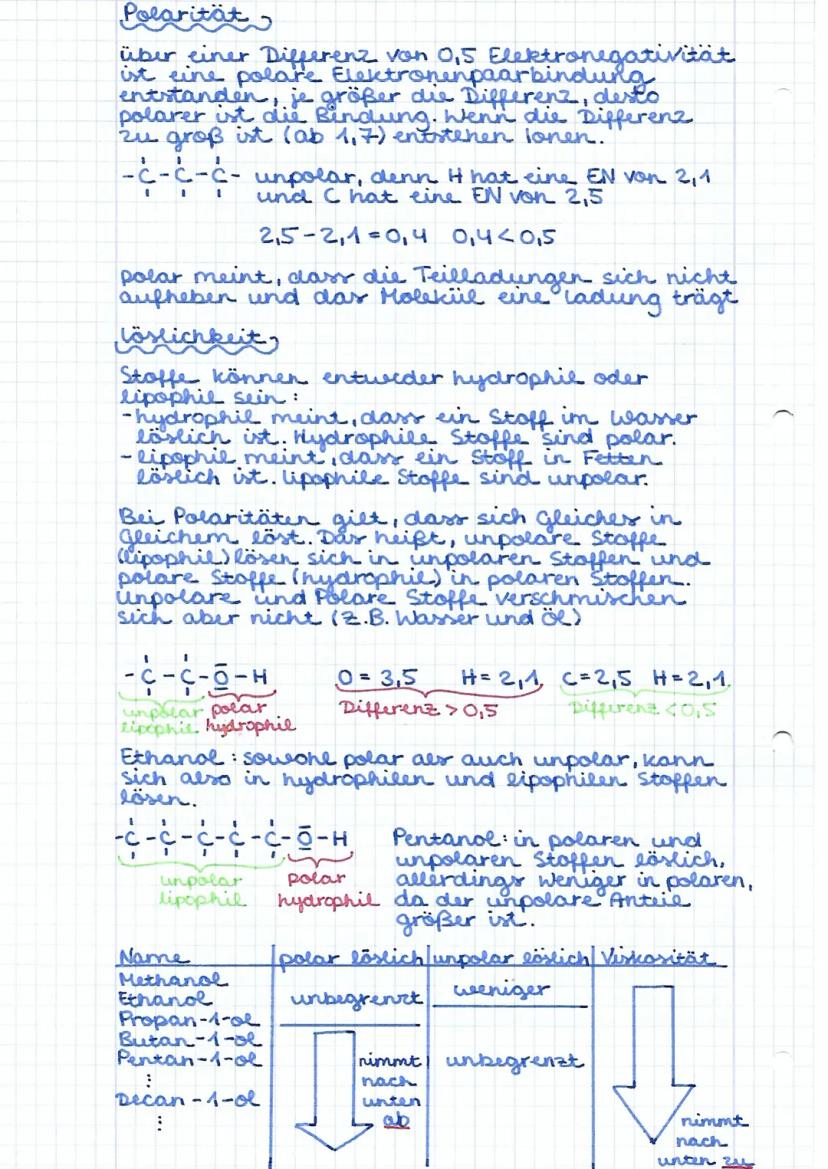 Polarität
über einer Differenz von 0,5 Elektronegativität
ist eine polare Elektronenpaarbindung
entstanden, je größer die Differenz, desto
polarer ist die Bindung. Wenn die Differenz
zu groß ist (ab 1,7) entstehen Ionen.
-C-C-C- unpolar, denn H hat eine EN von 2,1
und C hat eine EN von 2,5
2,5-2,1=0,4 0,4<0,5
polar meint, dass die Teilladungen sich nicht
aufheben und das Molekül eine Ladung trägt
Löslichkeit
Stoffe können entweder hydrophil oder
lipophil sein:
-hydrophil meint, dass ein Stoff im Wasser
löslich ist. Hydrophile Stoffe sind polar.
-lipophil meint, dass ein Stoff in Fetten
löslich ist. Lipophile Stoffe sind unpolar.
Bei Polaritäten gilt, dass sich Gleiches in
Gleichem löst. Das heißt, unpolare Stoffe
(lipophil) lösen sich in unpolaren Stoffen und
polare Stoffe (hydrophil) in polaren Stoffen.
Unpolare und Polare Stoffe verschmischen
sich aber nicht (z.B. Wasser und Öl)
-C-C-O-H O=3,5 H=2,1 C=2,5 H=2,1
unpolar polar Differenz>0,5 Differenz<0,5
lipophil hydrophil
Ethanol: sowohl polar als auch unpolar, kann
sich also in hydrophilen und lipophilen Stoffen
lösen.
-C-C-C-C-C-O-H Pentanol: in polaren und
unpolaren Stoffen löslich,
unpolar polar allerdings weniger in polaren,
lipophil hydrophil da der unpolare Anteil
größer ist.
Name polar löslich unpolar löslich Viskosität
Methanol
Ethanol unbegrenzt weniger
Propan-1-ol
Butan-1-ol
Pentan-1-ol nimmt unbegrenzt
⋮ nach
Decan-1-ol unten
⋮ ab nimmt
nach
unten zu